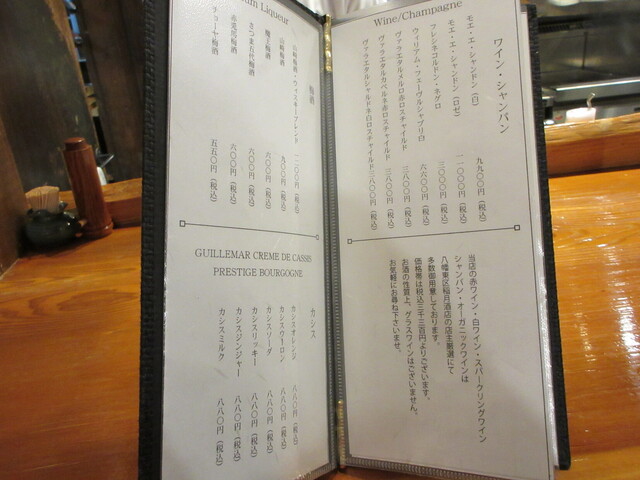 Wine/Champagne
ワイン・シャンパン
モエ・エ・シャンドン（白） 九九〇〇円（税込）
モエ・エ・シャンドン（ロゼ） 一一〇〇〇円（税込）
フレシネコルドン・ネグロ 三〇〇〇円（税込）
ウィリアム・フェーヴルシャブリ白 六六〇〇円（税込）
ヴァラエタルメルロ赤ロスチャイルド 三八〇〇円（税込）
ヴァラエタルカベルネ赤ロスチャイルド 三八〇〇円（税込）
ヴァラエタルシャルドネ白ロスチャイルド 三八〇〇円（税込）
当店の赤ワイン・白ワイン・スパークリングワイン
シャンパン・オーガニックワインは
八幡東区稲月酒店の店主厳選にて
多数御用意しております。
価格帯は税込三千三百円よりございます。
お酒の性質上、グラスワインはございません。
お気軽にお尋ね下さいませ。
Liqueur
梅酒
山崎梅酒・ウィスキーブレンド 一一〇〇円（税込）
山崎梅酒 九〇〇円（税込）
六〇〇円（税込）
六〇〇円（税込）
赤兎馬梅酒 六〇〇円（税込）
チョーヤ梅酒 五五〇円（税込）
GUILLEMAR CREME DE CASSIS
PRESTIGE BOURGOGNE
カシス
カシスオレンジ 八八〇円（税込）
カシスウーロン 八八〇円（税込）
カシスソーダ 八八〇円（税込）
カシスリッキー 八八〇円（税込）
カシスジンジャー 八八〇円（税込）
カシスミルク 八八〇円（税込）